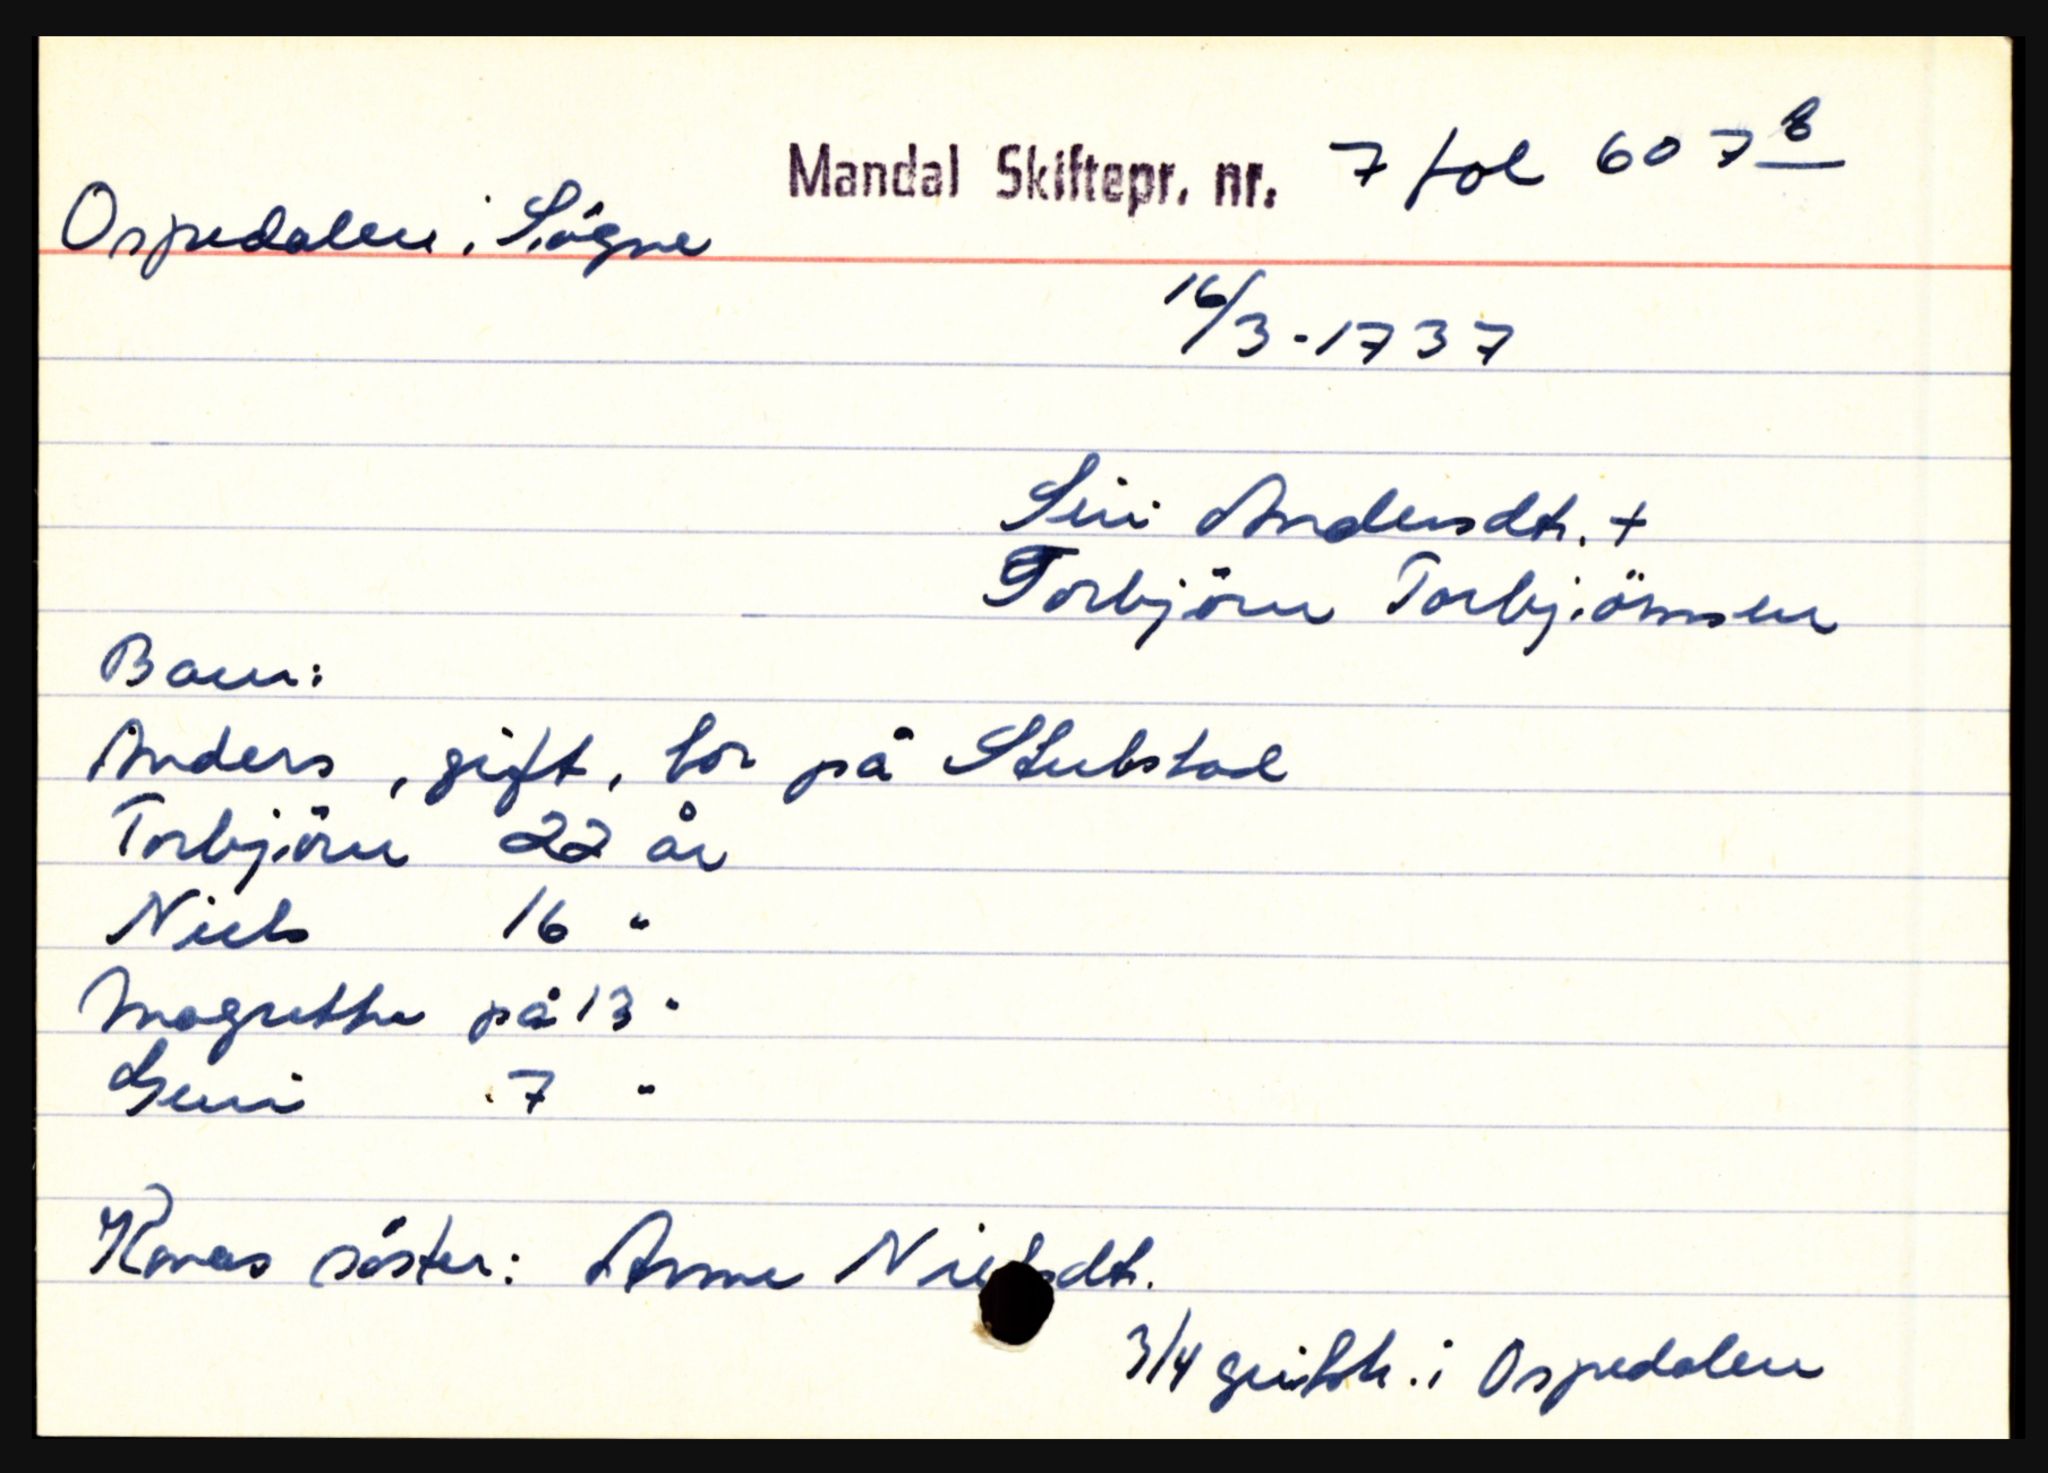 Mandal Skiftepr. nr. 7 fol 607 b
Ospedalen i Søgne
16/3-1737
Siri Andersdtr. +
Torbjörn Torbjörnsen
Barn:
Anders, gift, bor på Stubstad
Torbjörn 22 år
Niels 16 "
Magrethe på 13 "
Guri 7 "
Konas søster: Anne Nielsdtr.
3/4 i Ospedalen